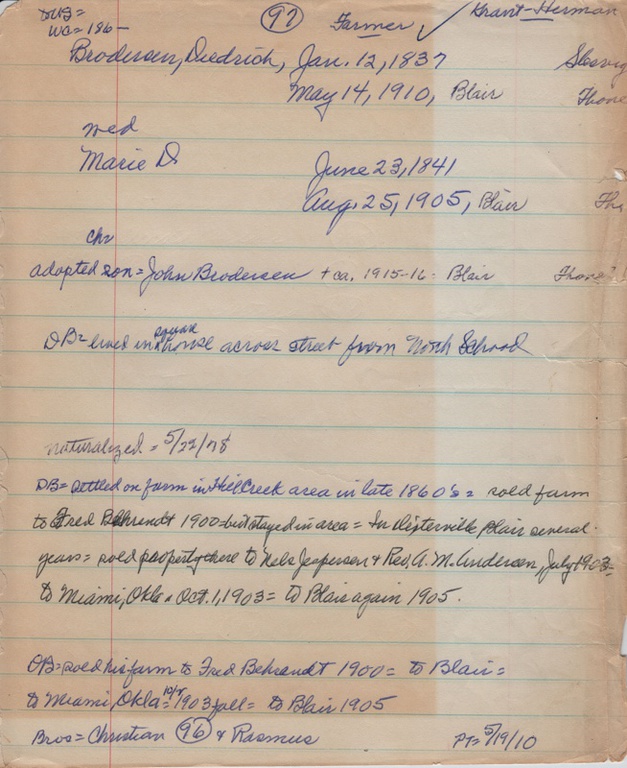 WC = 186-
97 Farmer ✓ Grant-Herman
Brodersen, Diedrich, Jan. 12, 1837 Slesvig
May 14, 1910, Blair Thone
wed
Marie D. June 23, 1841
Aug. 25, 1905, Blair Tho
chr
adopted son = John Brodersen + ca. 1915-16 - Blair Thone?
DB = lived in square house across street from North School
naturalized = 5/22/78
DB = settled on farm in Hill Creek area in late 1860's = sold farm
to Fred Behrendt 1900 = but stayed in area = In Blair several
years = sold property there to Nels Jespersen + Rev. A. M. Andersen, July 1903 =
to Miami, Okla. Oct. 1, 1903 = to Blair again 1905.
DB = sold his farm to Fred Behrandt 1900 = to Blair =
to Miami, Okla = 10/1 1903 fall = to Blair 1905
Bros = Christian 96 + Rasmus PT = 5/19/10